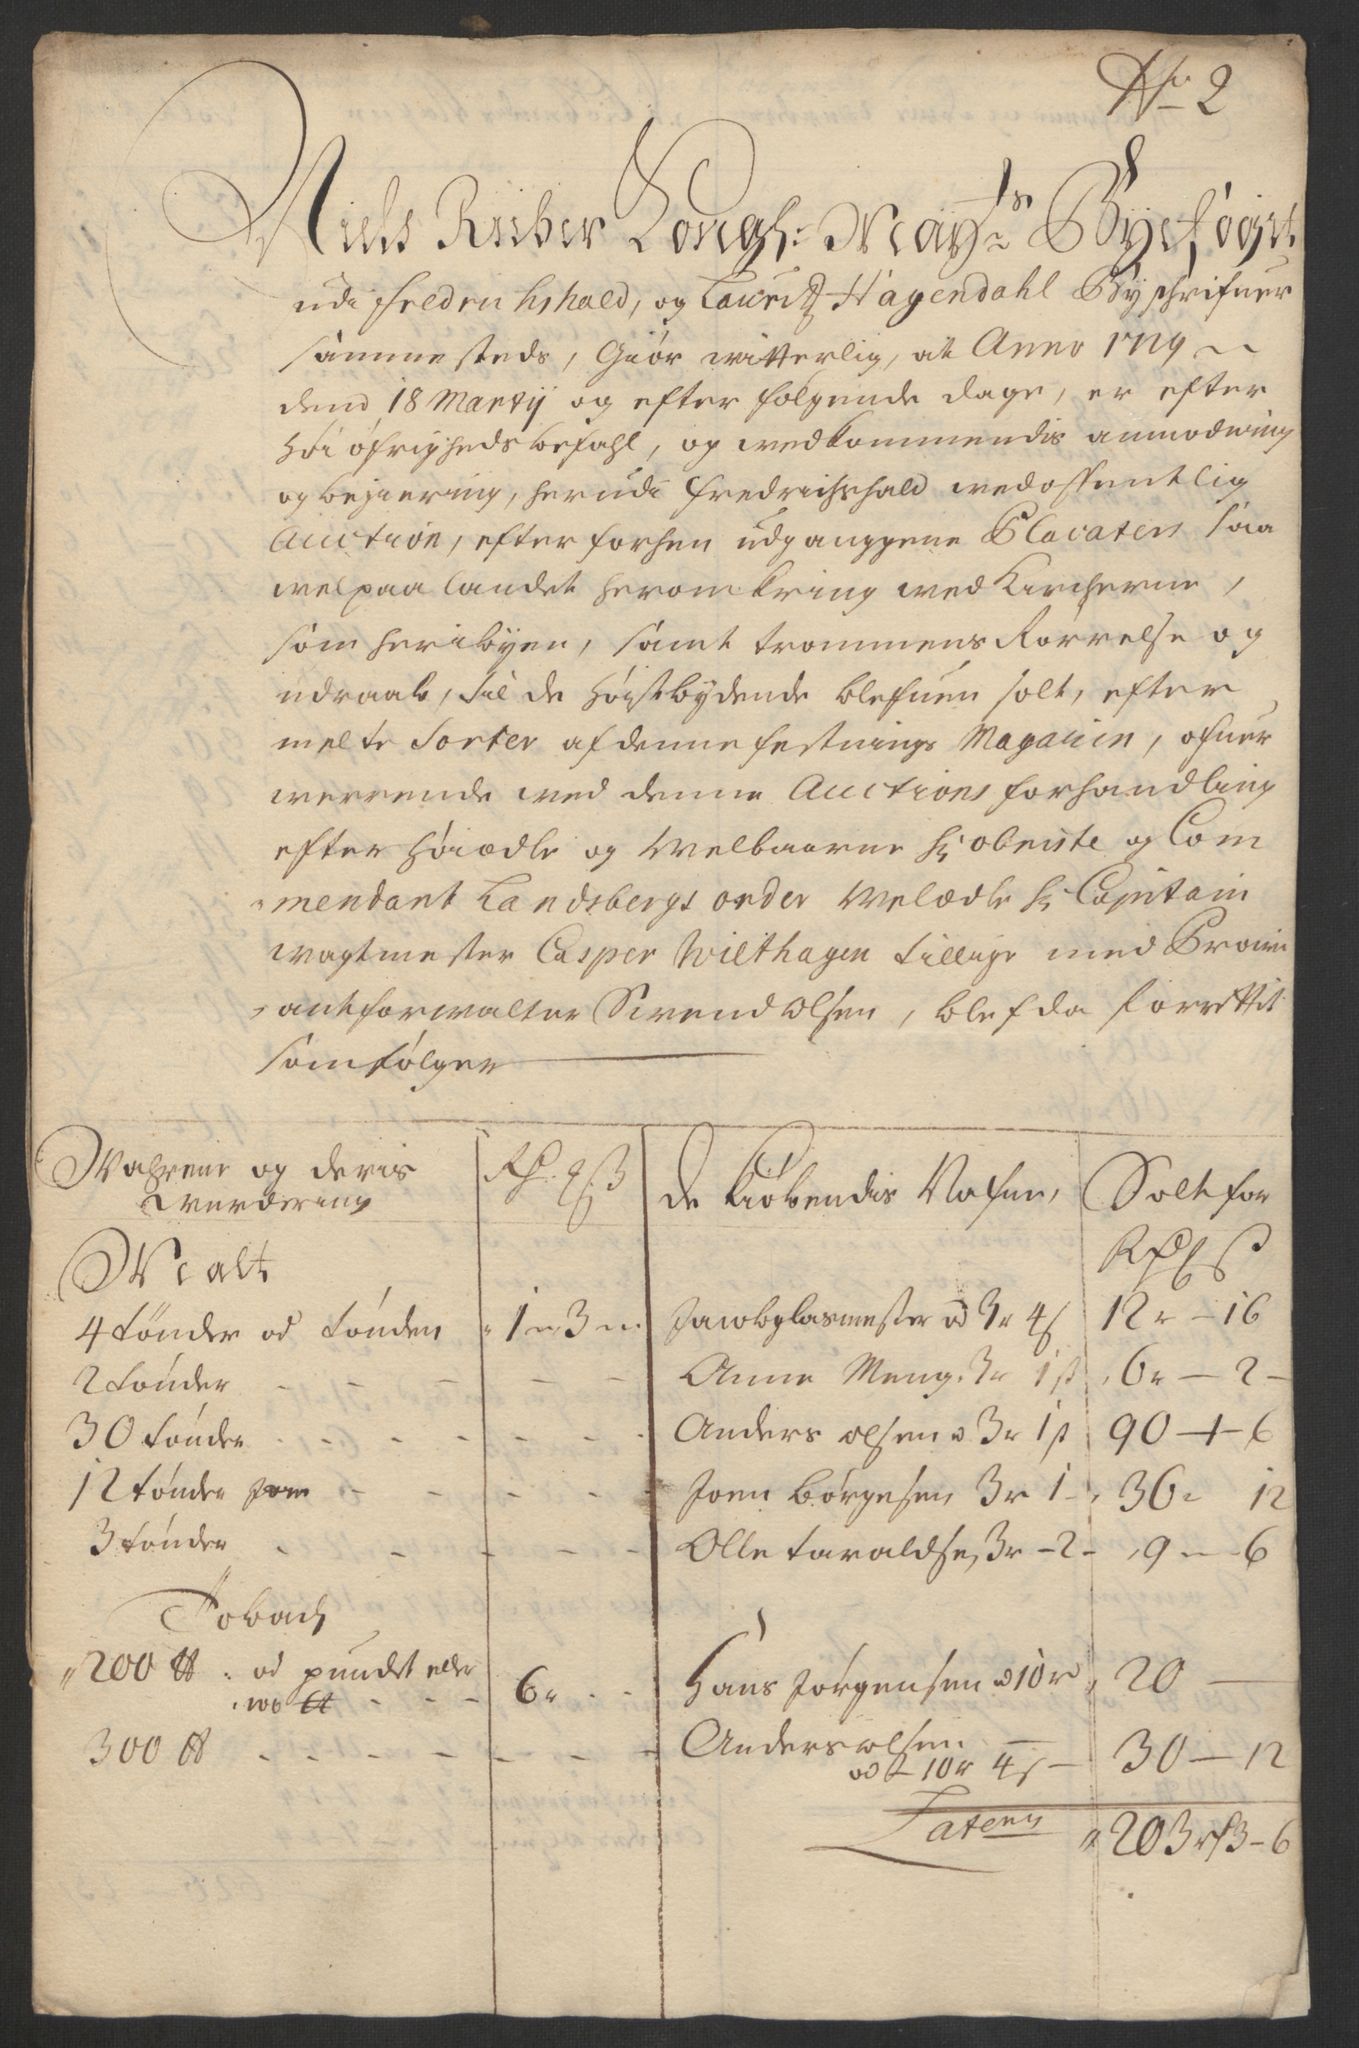 No 2
Niels Riiber Kongl: May:ts Byefogt
udi Fredrichshald, og Lauritz Hagendahl Byschrifuer
sammesteds, Giør witterlig, at Anno 1719
dend 18 Martij og efter følgende dage, er efter
Høi øfrigheds befahl, og wedkommendis anmodning
og begiering, herudi Fredrichshald wed offentlig
Auction, efter forhen udganggene Placater saa
wel paa landet heromkring wed Kircherne,
som her i byen, samt trommens Rørrelse og
udraab, til de Høistbydende blefuen solt, efter
melte Sorter af denne festnings Magazin, ofuer
werrende wed denne Auctions forhandling
efter Høiædle og Welbaarne Hr oberste og Com
mendant Landsbergs order Welædle Hr Capitain
wagtmester Casper Wilthagen tillige med Prowi
antforwalter Swend Olsen, blef da forrettit
som følger
Wahrene og deris wurdering | Rd. ſ. ß | De Kiøbendis Nafne, | Solt for
Rd ſ ß
Malt
4 tønder ad tønden | 1 - 3 - | Jacob glasmester ad 3r 4ß | 12r - 16
2 tønder - - - - - | Anne Meng. 3r 1ß | 6r - 2 -
30 tønder - - - - - | Anders olsen ad 3r 1ß | 90 - 1 - 6
12 tønder - - - - - | Joen Børgesen 3r 1 - | 36 - 12
3 tønder - - - - - | Olle taraldsen 3r - 2 - | 9 - 6
Toback
200 ℔ ad pundet eller
100 ℔ - - - | 6r - - | Hans Jørgensen ad 10r | 20 -
300 ℔ - - - - - | Anders olsen
ad 10r 4ß - | 30 - 12
Lateris | 203r 3 - 6